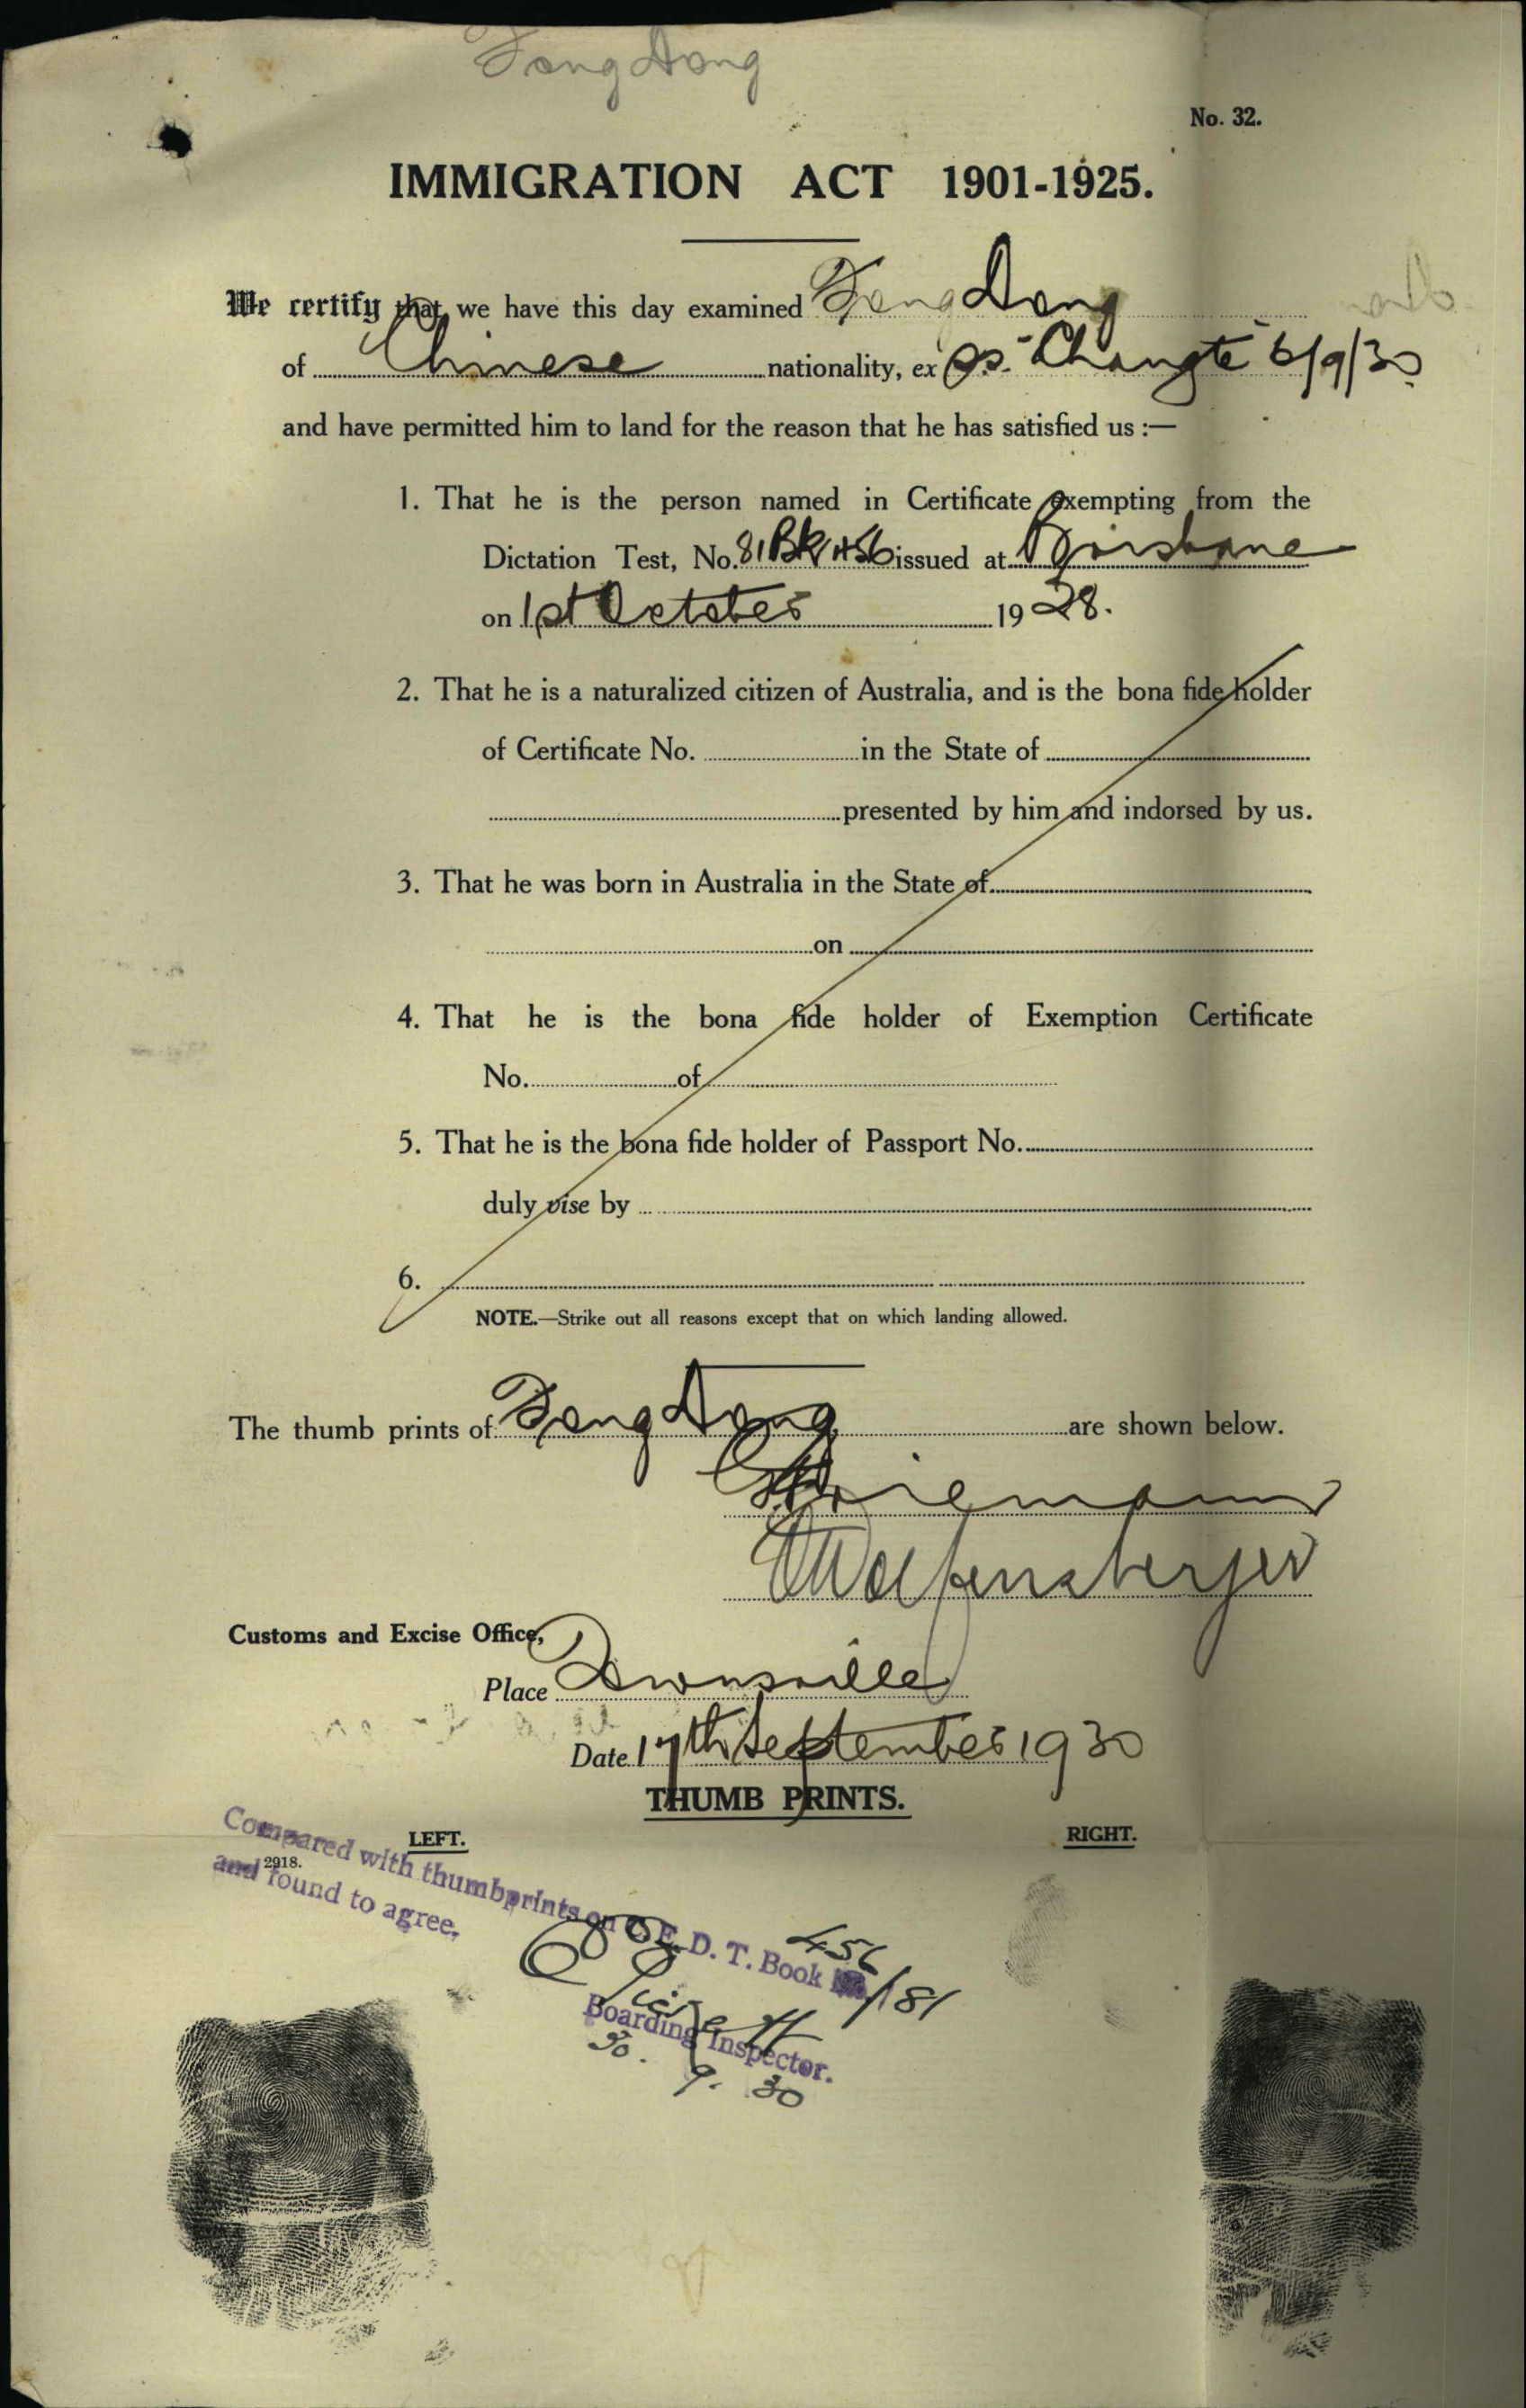 Fong Dong
No. 32.
IMMIGRATION ACT 1901-1925.
We certify that we have this day examined Fong Dong
of Chinese nationality, ex s.s. "Changte" 6/9/30
and have permitted him to land for the reason that he has satisfied us :—
1. That he is the person named in Certificate exempting from the
Dictation Test, No. 81 Bk 456 issued at Brisbane
on 1st October 1928.
2. That he is a naturalized citizen of Australia, and is the bona fide holder
of Certificate No. in the State of
presented by him and indorsed by us.
3. That he was born in Australia in the State of
on
4. That he is the bona fide holder of Exemption Certificate
No. of
5. That he is the bona fide holder of Passport No.
duly vise by
6.
NOTE.—Strike out all reasons except that on which landing allowed.
The thumb prints of Fong Dong are shown below.
Customs and Excise Office,
Place Townsville
Date 17th September 1930
THUMB PRINTS.
LEFT. RIGHT.
2918.
Compared with thumbprints on C. E. D. T. Book 456/81
and found to agree.
Boarding Inspector.
30. 9. 30